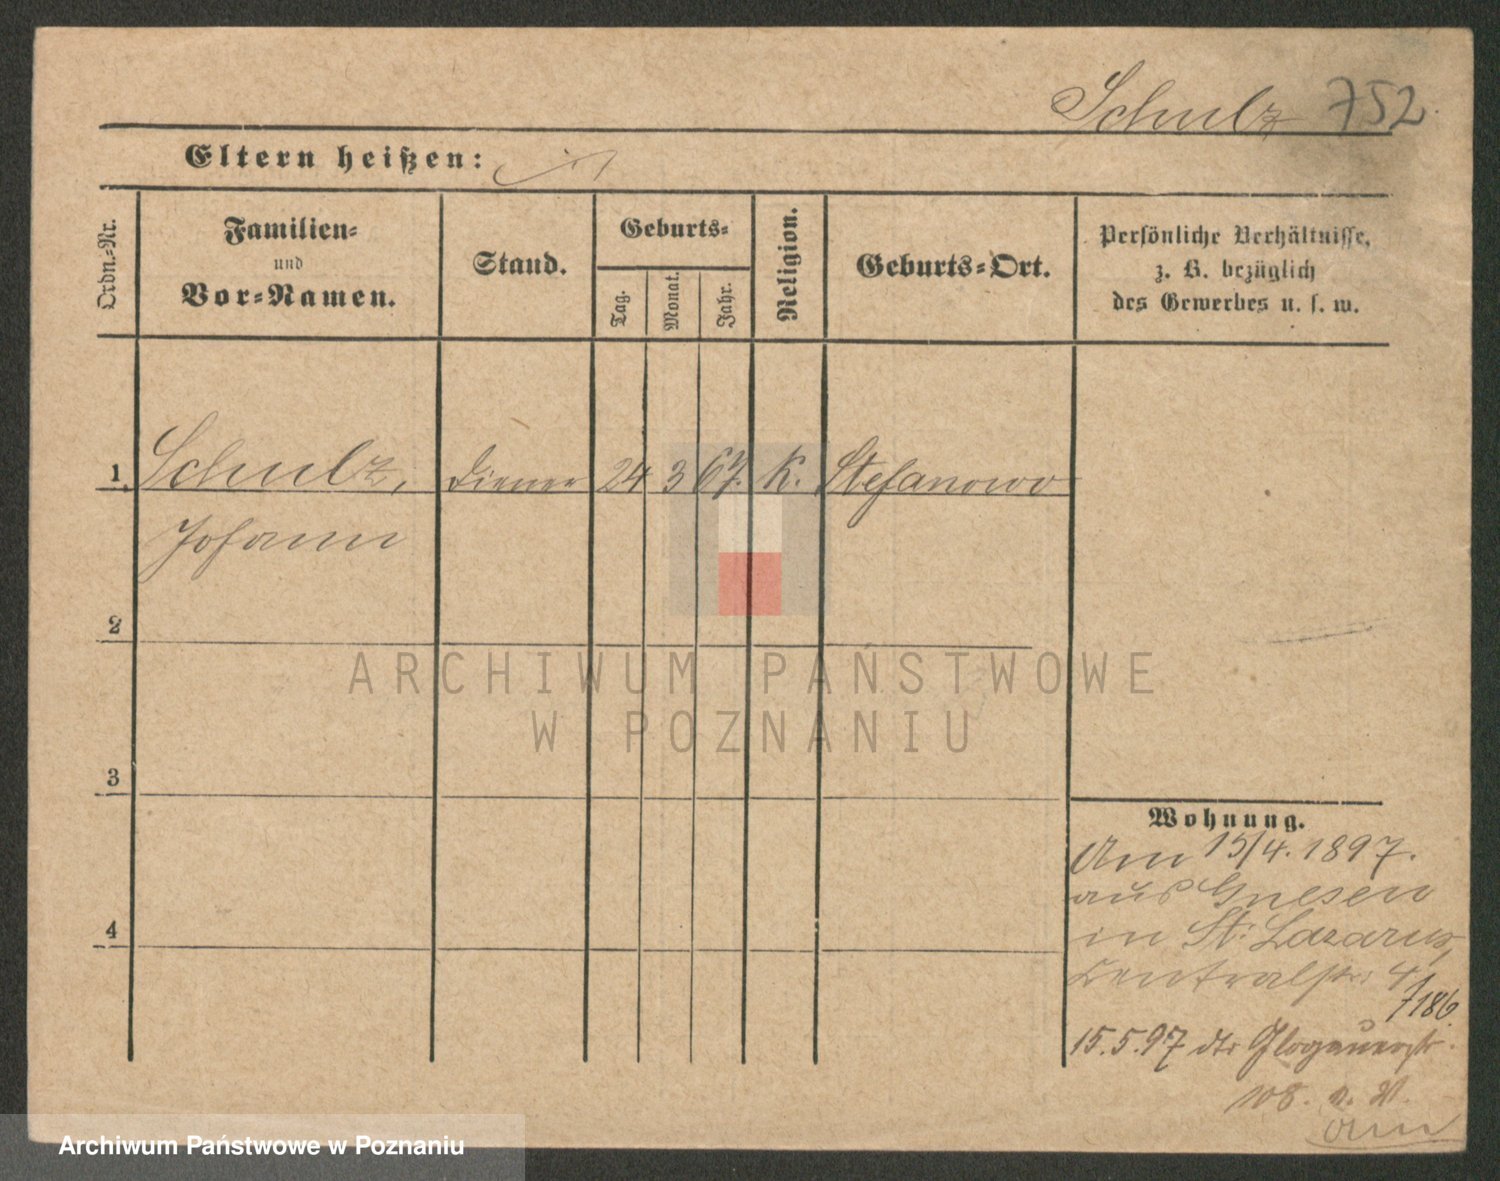 Schulz 752
Eltern heißen:
Ordn.-Nr.
Familien-
und
Vor-Namen.
Stand.
Geburts-
Tag.
Monat.
Jahr.
Religion.
Geburts-Ort.
Persönliche Verhältnisse,
z. B. bezüglich
des Gewerbes u. s. w.
1. Schulz, Diener 24 3 67. K. Stefanowo
Johann
2
ARCHIWUM PAŃSTWOWE
W POZNANIU
3
Wohnung.
Am 15/4. 1897.
aus Gnesen
in St. Lazarus,
Centralstr. 4
7186.
4
15.5.97 dtr Glogauerstr.
108.
Archiwum Państwowe w Poznaniu